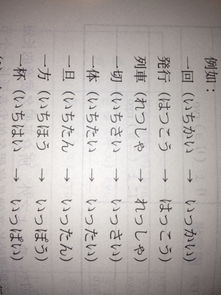 例如：
一回（いちかい → いっかい）
発行（はつこう → はっこう）
列車（れつしゃ → れっしゃ）
一切（いちさい → いっさい）
一体（いちたい → いったい）
一旦（いちたん → いったん）
一方（いちほう → いっぽう）
一杯（いちはい → いっぱい）